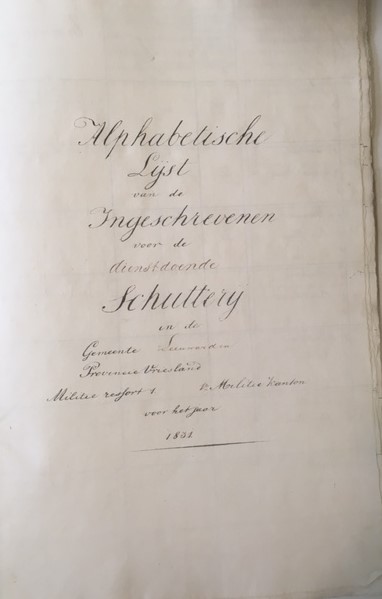 Alphabetische
Lijst
van de
Ingeschrevenen
voor de
dienstdoende
Schuttery
in de
Gemeente Leeuwarden
Provincie Vriesland
Militie ressort 1 Militie Kanton
voor het jaar
1831